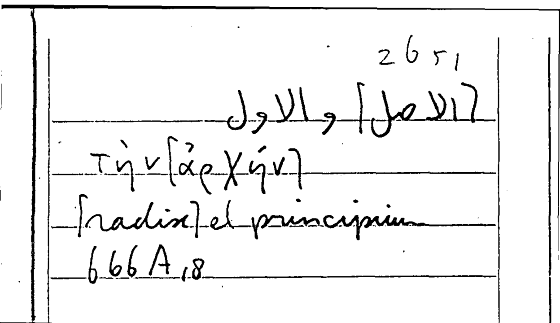 2651
[الاصل] والاول
τὴν [ἀρχήν]
[radix] et principium
666A,8